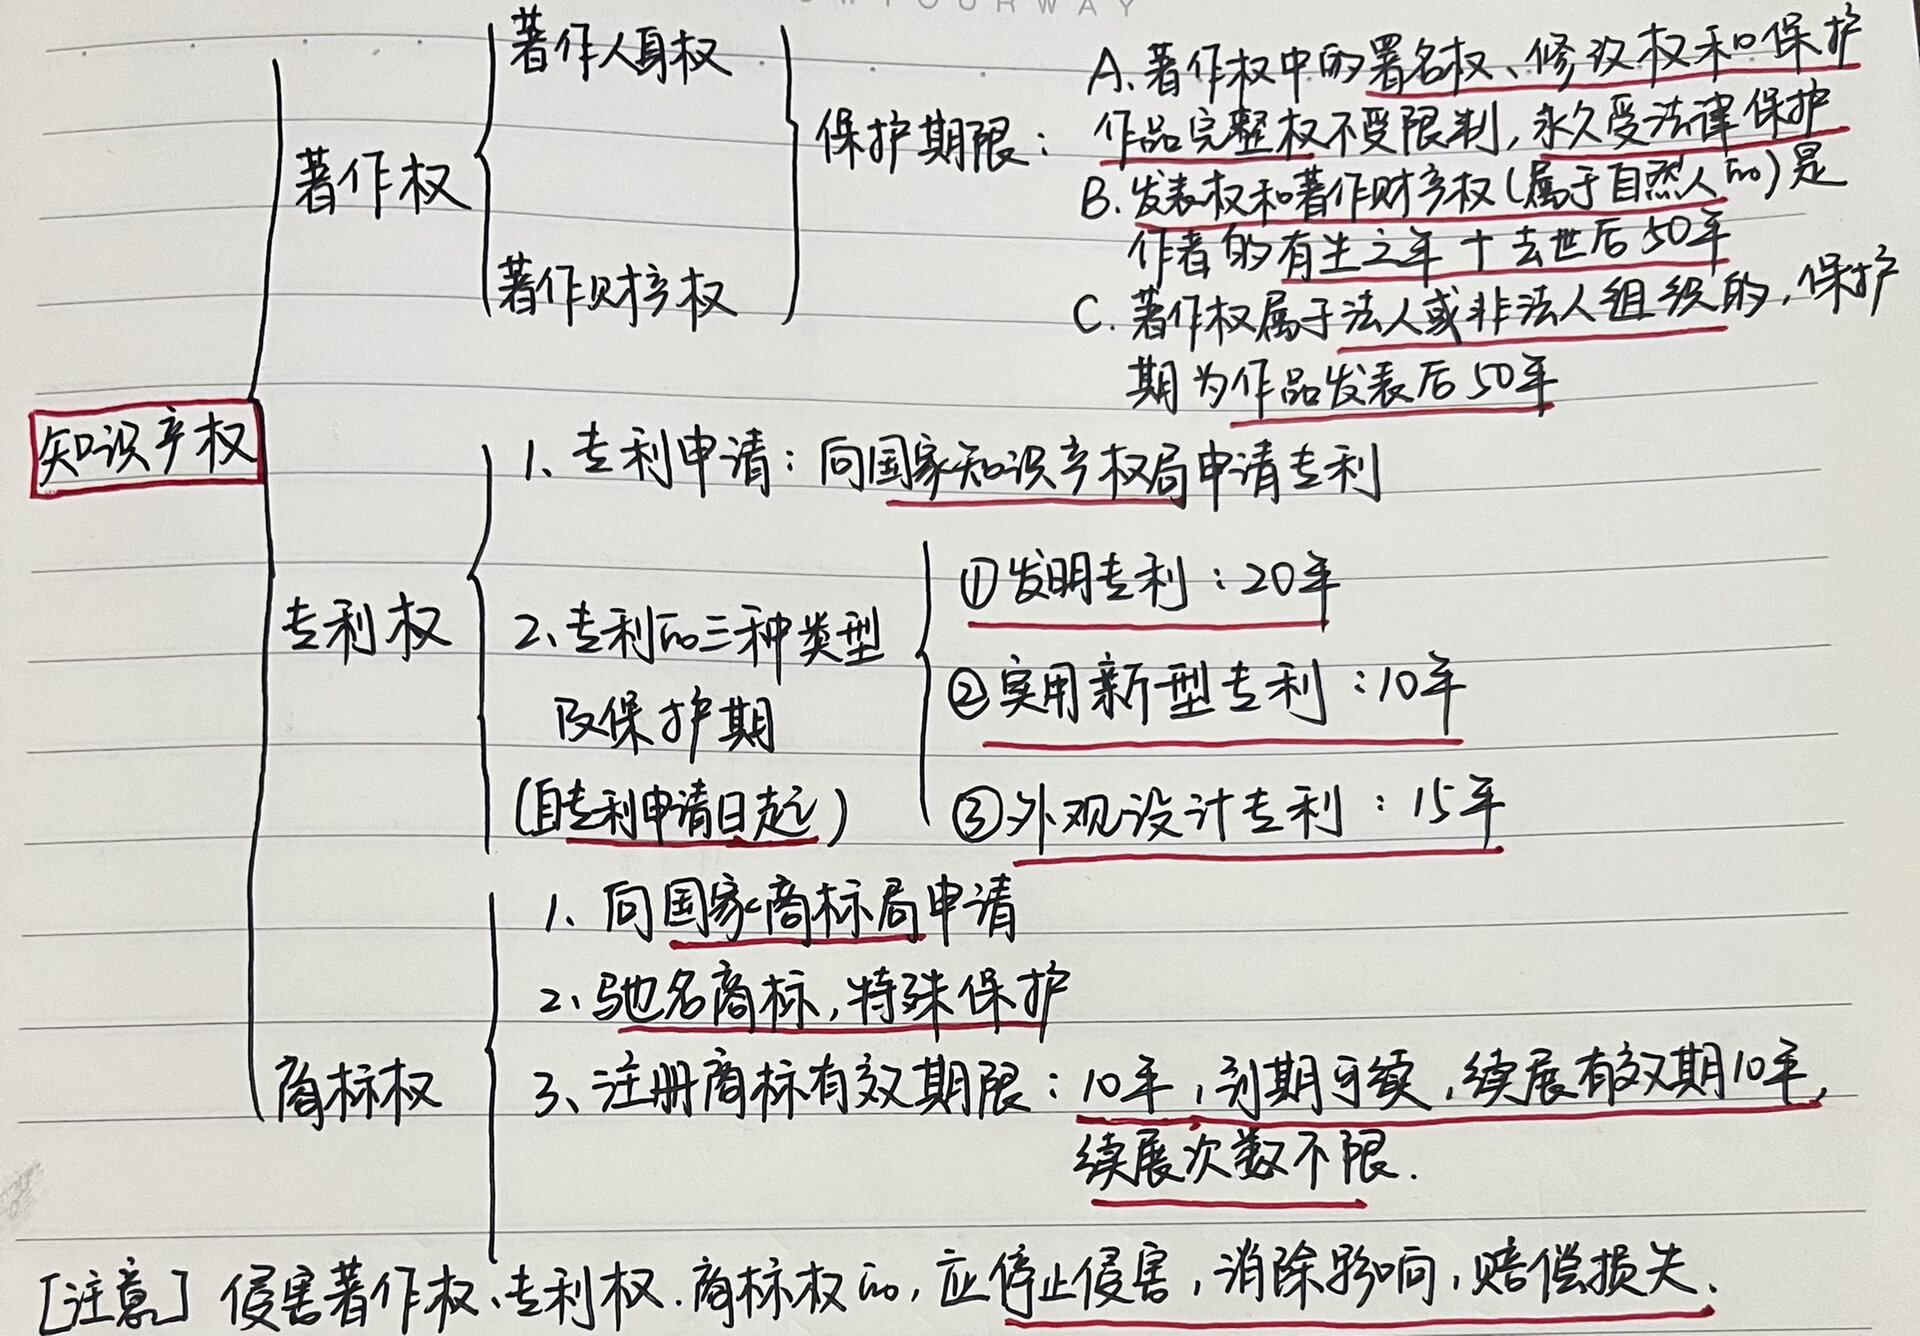 OWYOURWAY
著作人身权
A、著作权中的署名权、修改权和保护
保护期限：
作品完整权不受限制，永久受法律保护
著作权
B. 发表权和著作财产权(属于自然人的)是
作者的有生之年+去世后50年
著作财产权
C. 著作权属于法人或非法人组织的，保护
期为作品发表后50年
知识产权
1、专利申请：向国家知识产权局申请专利
①发明专利：20年
专利权
2、专利的三种类型
②实用新型专利：10年
及保护期
(自专利申请日起)
③外观设计专利：15年
1、向国家商标局申请
2、驰名商标，特殊保护
商标权
3、注册商标有效期限：10年，到期可续，续展有效期10年，
续展次数不限.
[注意] 侵害著作权、专利权.商标权的，应停止侵害，消除影响，赔偿损失.